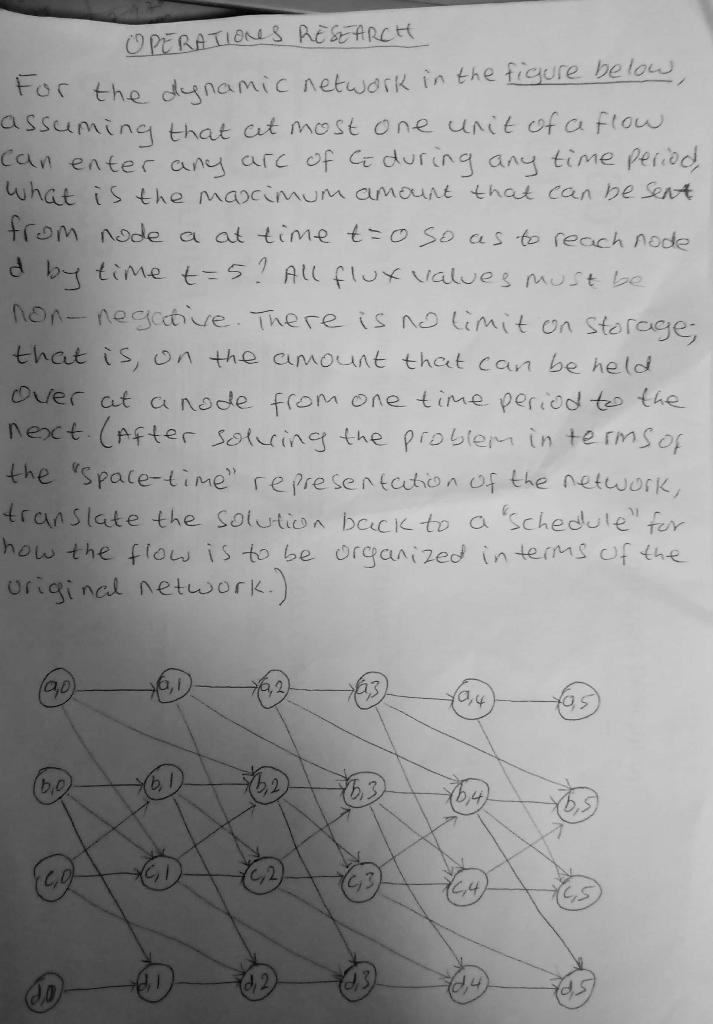 OPERATIONS RESEARCH
For the dynamic network in the figure below,
assuming that at most one unit of a flow
can enter any arc of G during any time period,
what is the maximum amount that can be sent
from node a at time t=0 so as to reach node
d by time t=5? All flux values must be
non-negative. There is no limit on storage;
that is, on the amount that can be held
over at a node from one time period to the
next. (After solving the problem in terms of
the "space-time" representation of the network,
translate the solution back to a "schedule" for
how the flow is to be organized in terms of the
original network.)
a,0 a,1 a,2 a,3 a,4 a,5
b,0 b,1 b,2 b,3 b,4 b,5
c,0 c,1 c,2 c,3 c,4 c,5
d,0 d,1 d,2 d,3 d,4 d,5